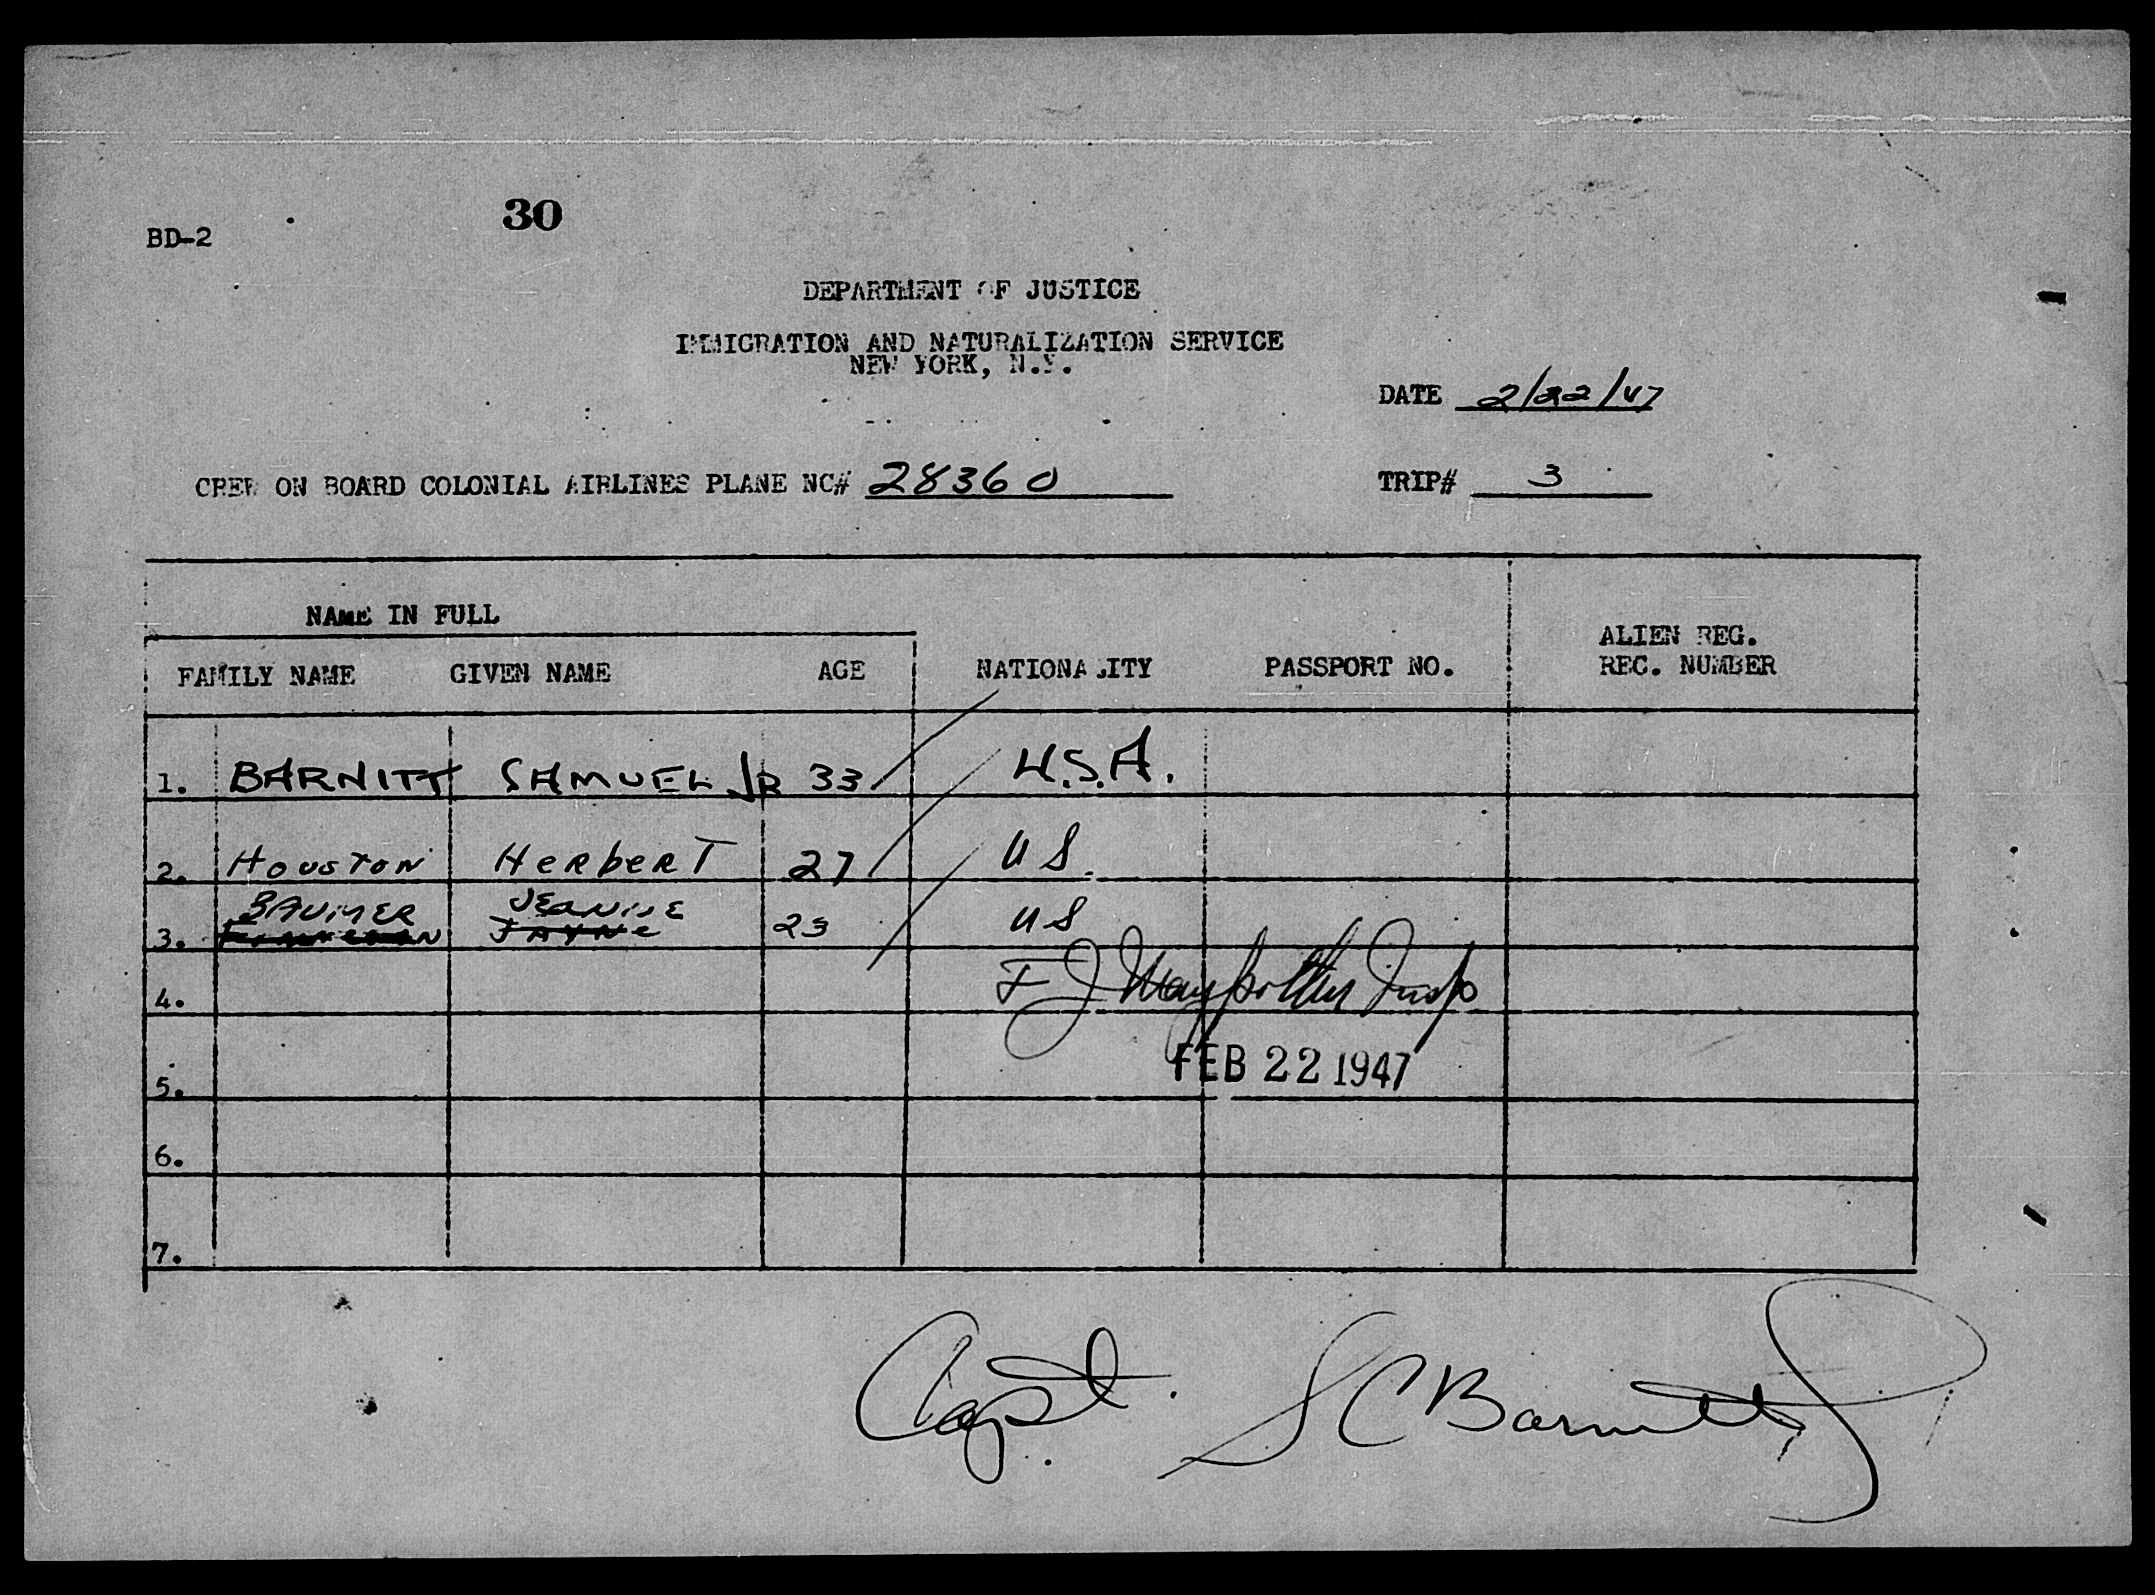 30
BD-2
DEPARTMENT OF JUSTICE
IMMIGRATION AND NATURALIZATION SERVICE
NEW YORK, N.Y.
DATE 2/22/47
CREW ON BOARD COLONIAL AIRLINES PLANE NC# 28360 TRIP# 3
NAME IN FULL
ALIEN REG.
FAMILY NAME GIVEN NAME AGE NATIONALITY PASSPORT NO. REC. NUMBER
1. BARNITT SAMUEL JR 33 U.S.A.
2. Houston HerberT 27 US.
BAUMER JEANNE
3. JAYNe 23 US
4. F J Insp
FEB 22 1947
5.
6.
7.
Capt. S C Barnitt Jr